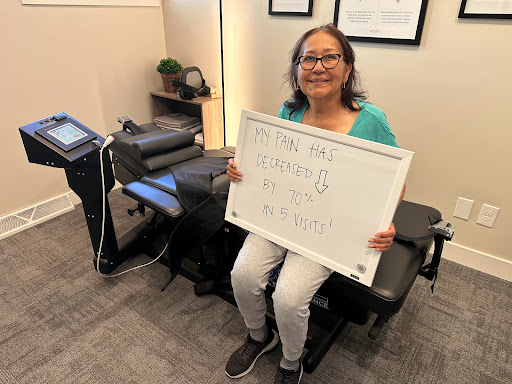 MY PAIN HAS
DECREASED ↓
BY 70%
IN 5 VISITS!